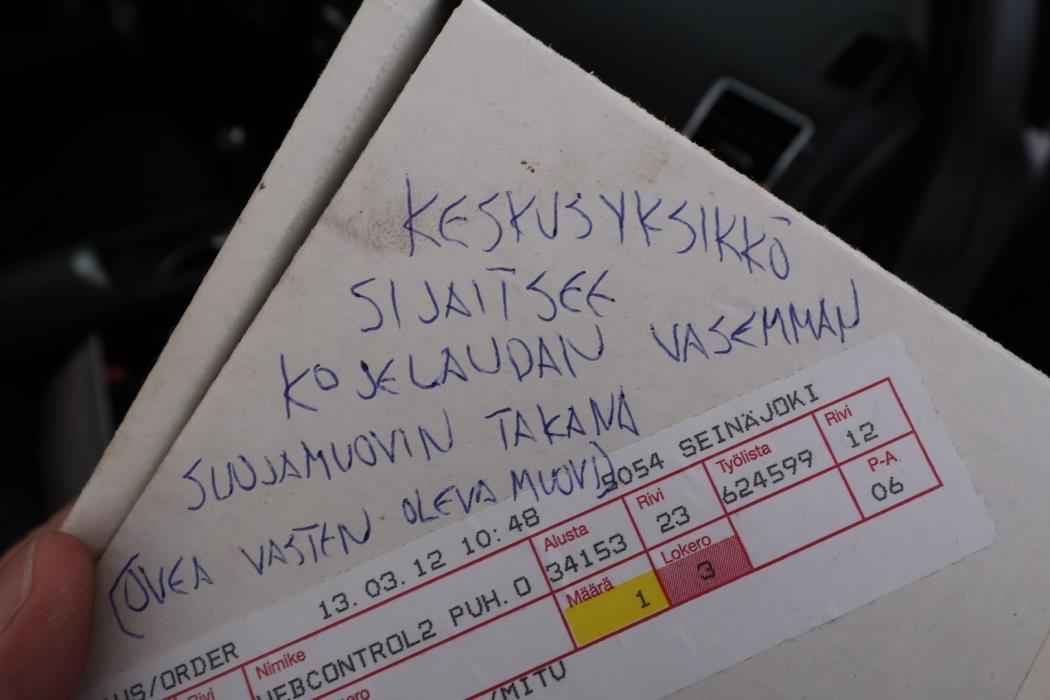 KESKUSYKSIKKÖ
SIJAITSEE
KOJELAUDAN VASEMMAN
SUOJAMUOVIN TAKANA
(OVEA VASTEN OLEVA MUOVI)
5054 SEINÄJOKI
13.03.12 10:48
Alusta
34153
Rivi
23
Työlista
624599
Rivi
12
Määrä
1
Lokero
3
P-A
06
US/ORDER
Rivi
Nimike
WEBCONTROL2 PUH.O
/MITU